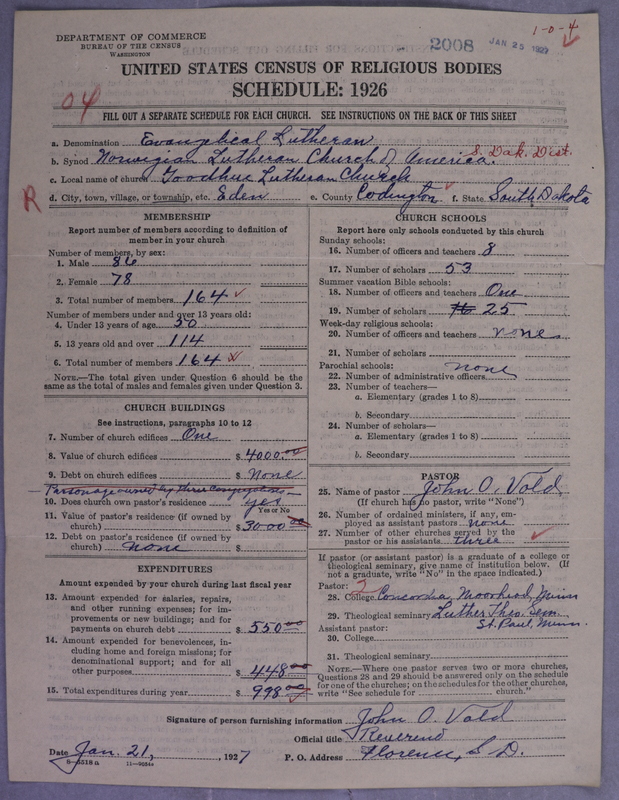 1-0-4
DEPARTMENT OF COMMERCE
BUREAU OF THE CENSUS
WASHINGTON
2008 JAN 25 1927
UNITED STATES CENSUS OF RELIGIOUS BODIES
SCHEDULE: 1926
04
FILL OUT A SEPARATE SCHEDULE FOR EACH CHURCH. SEE INSTRUCTIONS ON THE BACK OF THIS SHEET
a. Denomination Evangelical Lutheran
b. Synod Norwegian Lutheran Church of America. S. Dak. Dist.
c. Local name of church Goodhue Lutheran Church
R
d. City, town, village, or township, etc. Eden e. County Codington f. State South Dakota
MEMBERSHIP
Report number of members according to definition of
member in your church
Number of members, by sex:
1. Male 86
2. Female 78
3. Total number of members 164
Number of members under and over 13 years old:
4. Under 13 years of age 50
5. 13 years old and over 114
6. Total number of members 164
NOTE.—The total given under Question 6 should be the
same as the total of males and females given under Question 3.
CHURCH BUILDINGS
See instructions, paragraphs 10 to 12
7. Number of church edifices One
8. Value of church edifices $ 4000.00
9. Debt on church edifices $ None
Parsonage owned by three Congregations
10. Does church own pastor's residence yes
Yes or No
11. Value of pastor's residence (if owned by
church) $ 3000.00
12. Debt on pastor's residence (if owned by
church) none $
EXPENDITURES
Amount expended by your church during last fiscal year
13. Amount expended for salaries, repairs,
and other running expenses; for im-
provements or new buildings; and for
payments on church debt $ 550.00
14. Amount expended for benevolences, in-
cluding home and foreign missions; for
denominational support; and for all
other purposes $ 448.00
15. Total expenditures during year $ 998.00
CHURCH SCHOOLS
Report here only schools conducted by this church
Sunday schools:
16. Number of officers and teachers 8
17. Number of scholars 53
Summer vacation Bible schools:
18. Number of officers and teachers One
19. Number of scholars 25
Week-day religious schools:
20. Number of officers and teachers none
21. Number of scholars
Parochial schools: none
22. Number of administrative officers
23. Number of teachers—
a. Elementary (grades 1 to 8)
b. Secondary
24. Number of scholars—
a. Elementary (grades 1 to 8)
b. Secondary
PASTOR
25. Name of pastor John O. Vold
(If church has no pastor, write "None")
26. Number of ordained ministers, if any, em-
ployed as assistant pastors none
27. Number of other churches served by the
pastor or his assistants three
If pastor (or assistant pastor) is a graduate of a college or
theological seminary, give name of institution below. (If
not a graduate, write "No" in the space indicated.)
Pastor: 2
28. College Concordia, Moorhead, Minn
29. Theological seminary Luther Theo. Sem.
Assistant pastor: St. Paul, Minn.
30. College
31. Theological seminary
NOTE.—Where one pastor serves two or more churches,
Questions 28 and 29 should be answered only on the schedule
for one of the churches; on the schedules for the other churches,
write "See schedule for church."
Signature of person furnishing information John O. Vold
Official title Reverend
Date Jan. 21, 1927 P. O. Address Florence, S. D.
8-5518a 11-9054